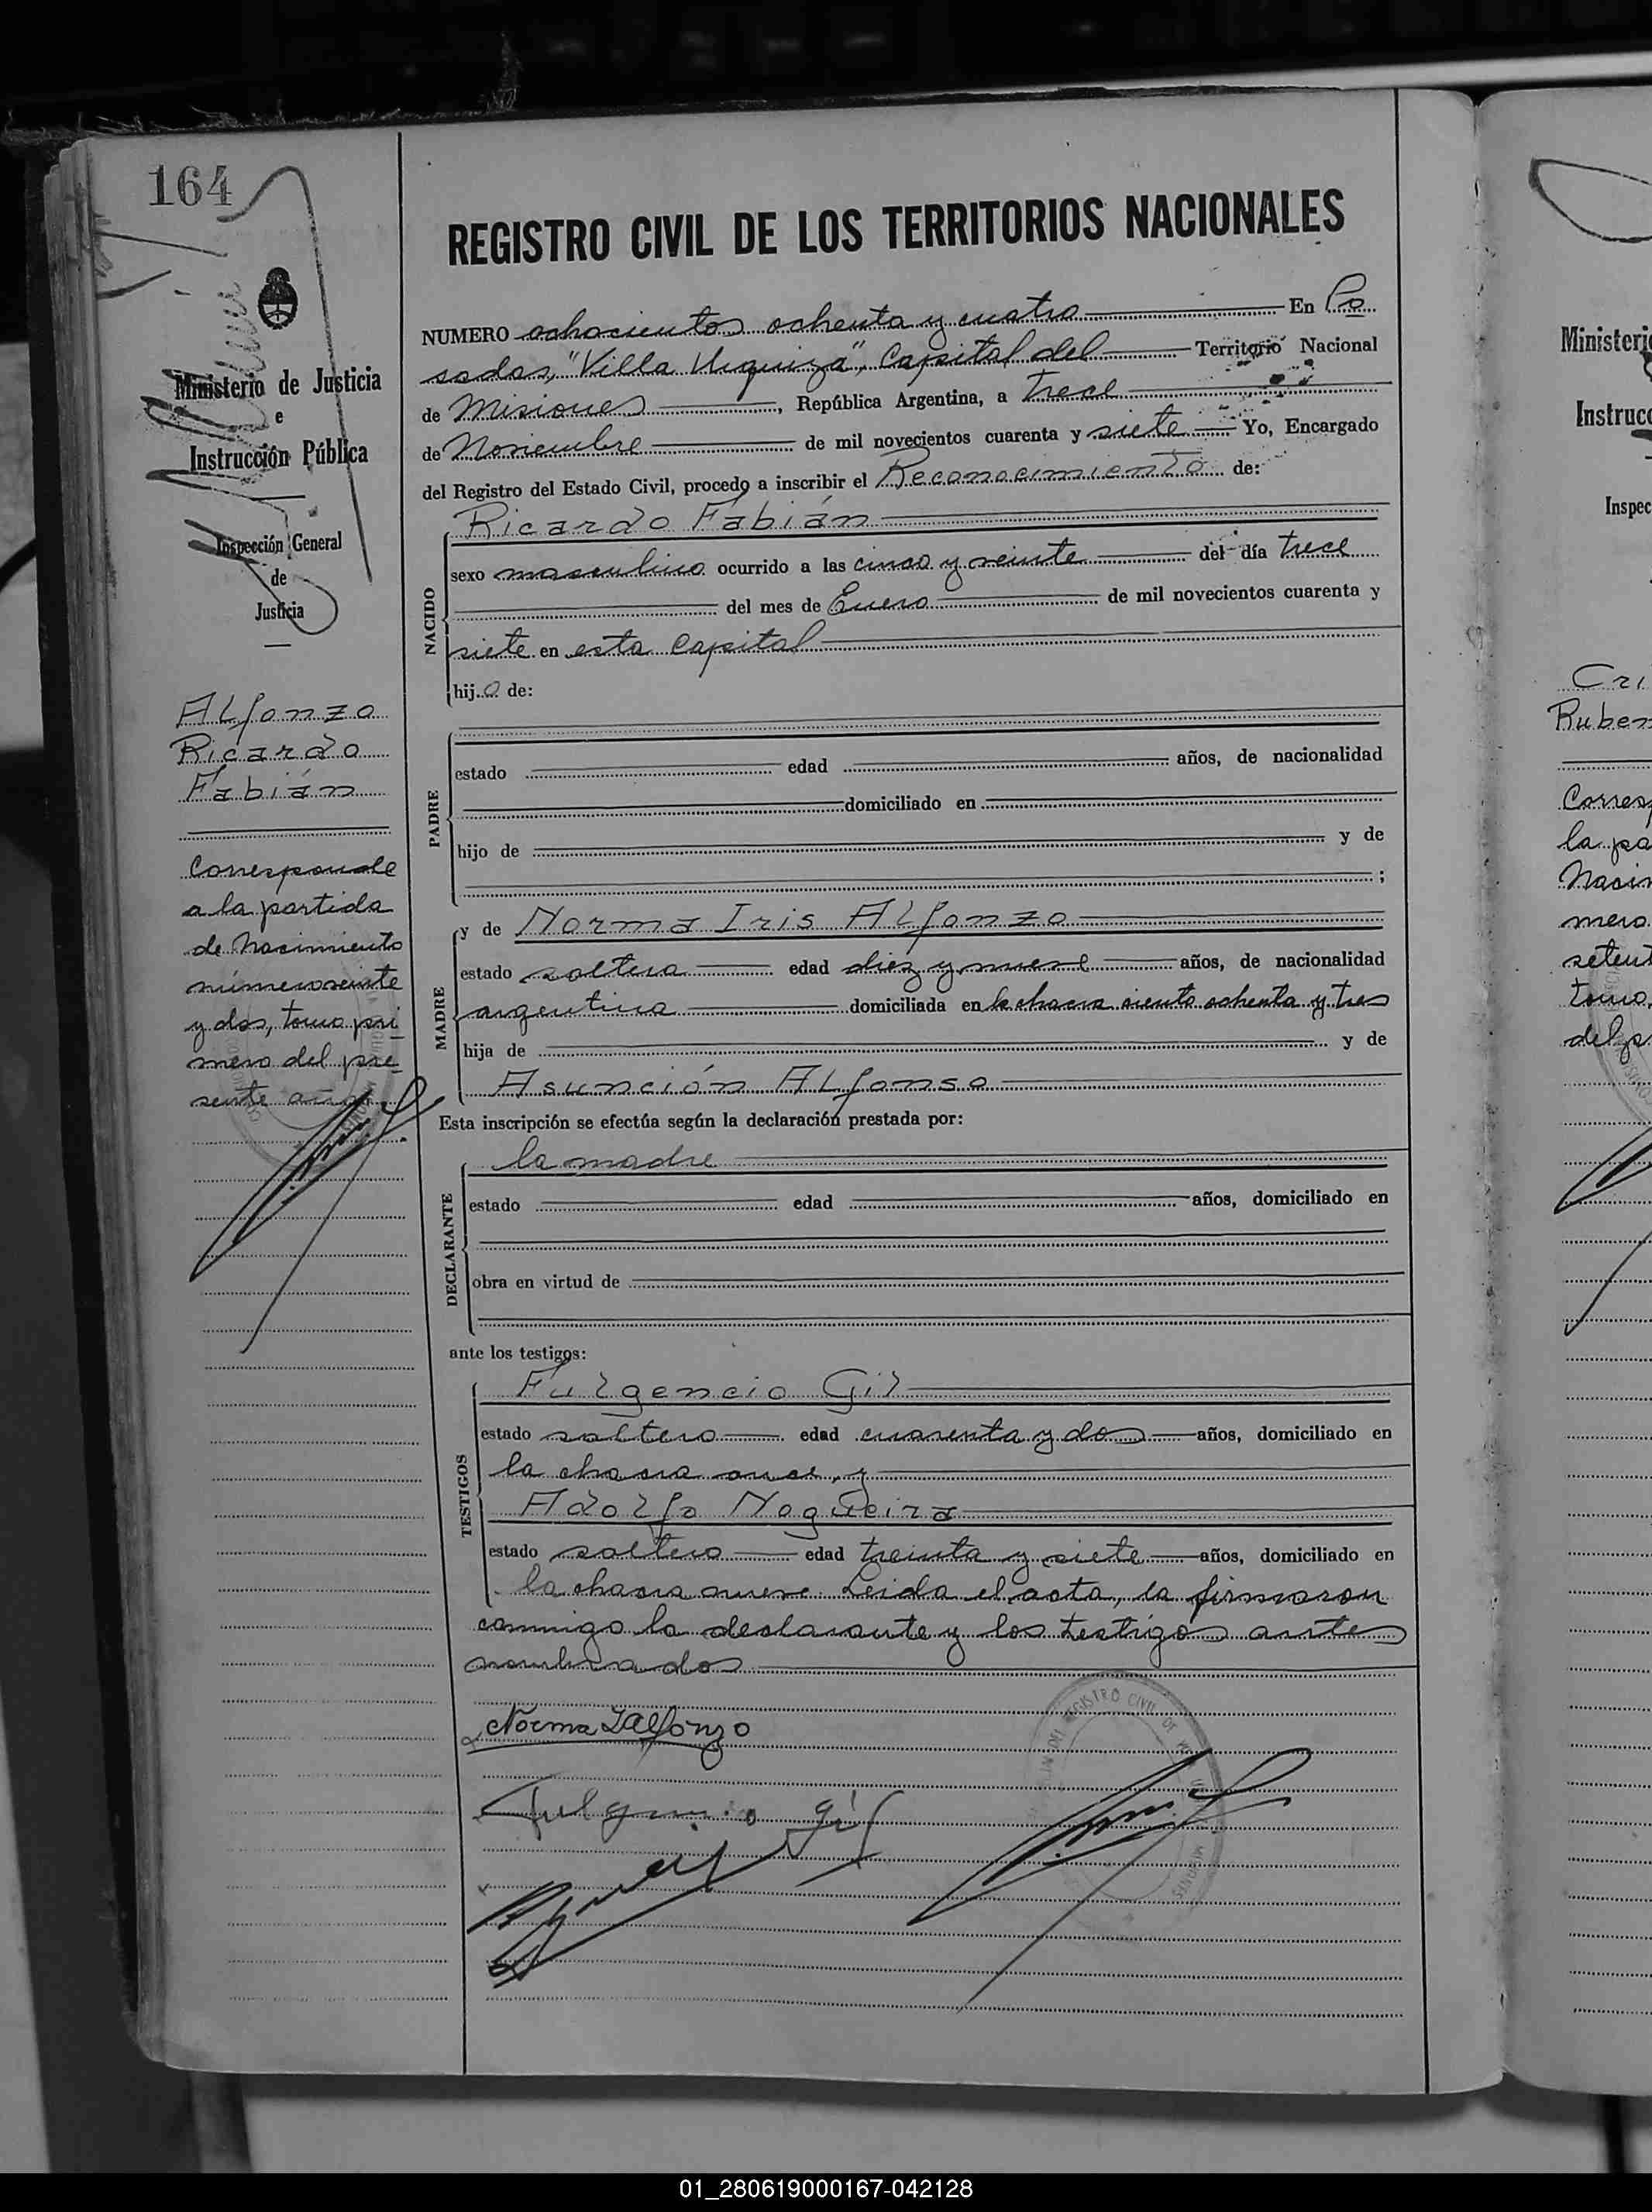 164
Ministerio de Justicia
e
Instrucción Pública
Inspección General
de
Justicia
Alfonzo
Ricardo
Fabián
Corresponde
a la partida
de Nacimiento
número veinte
y dos, tomo pri
mero del pre
sente año
REGISTRO CIVIL DE LOS TERRITORIOS NACIONALES
NUMERO ochocientos ochenta y cuatro En Po
sadas, "Villa Urquiza", Capital del Territorio Nacional
de Misiones, República Argentina, a trece
de Noviembre de mil novecientos cuarenta y siete Yo, Encargado
del Registro del Estado Civil, procedo a inscribir el Reconocimiento de:
NACIDO
Ricardo Fabián
sexo masculino ocurrido a las cinco y veinte del día trece
del mes de Enero de mil novecientos cuarenta y
siete en esta Capital
hijo de:
PADRE
estado edad años, de nacionalidad
domiciliado en
hijo de y de
;
MADRE
y de Norma Iris Alfonzo
estado soltera edad diez y nueve años, de nacionalidad
argentina domiciliada en la chacra ciento ochenta y tres
hija de y de
Asunción Alfonso
Esta inscripción se efectúa según la declaración prestada por:
DECLARANTE
la madre
estado edad años, domiciliado en
obra en virtud de
ante los testigos:
TESTIGOS
Fulgencio Gil
estado soltero edad cuarenta y dos años, domiciliado en
la chacra once, y
Adolfo Nogueira
estado soltero edad treinta y siete años, domiciliado en
la chacra nueve. Leida el acta, la firmaron
conmigo la declarante y los testigos antes
nombrados
Norma I Alfonzo
Fulgencio Gil
REGISTRO CIVIL DE
MISIONES
Cri
Ruben
Corresp
la pa
Nacim
mero
setent
tomo
del p
Ministerio
Instrucc
Inspec
01_280619000167-042128